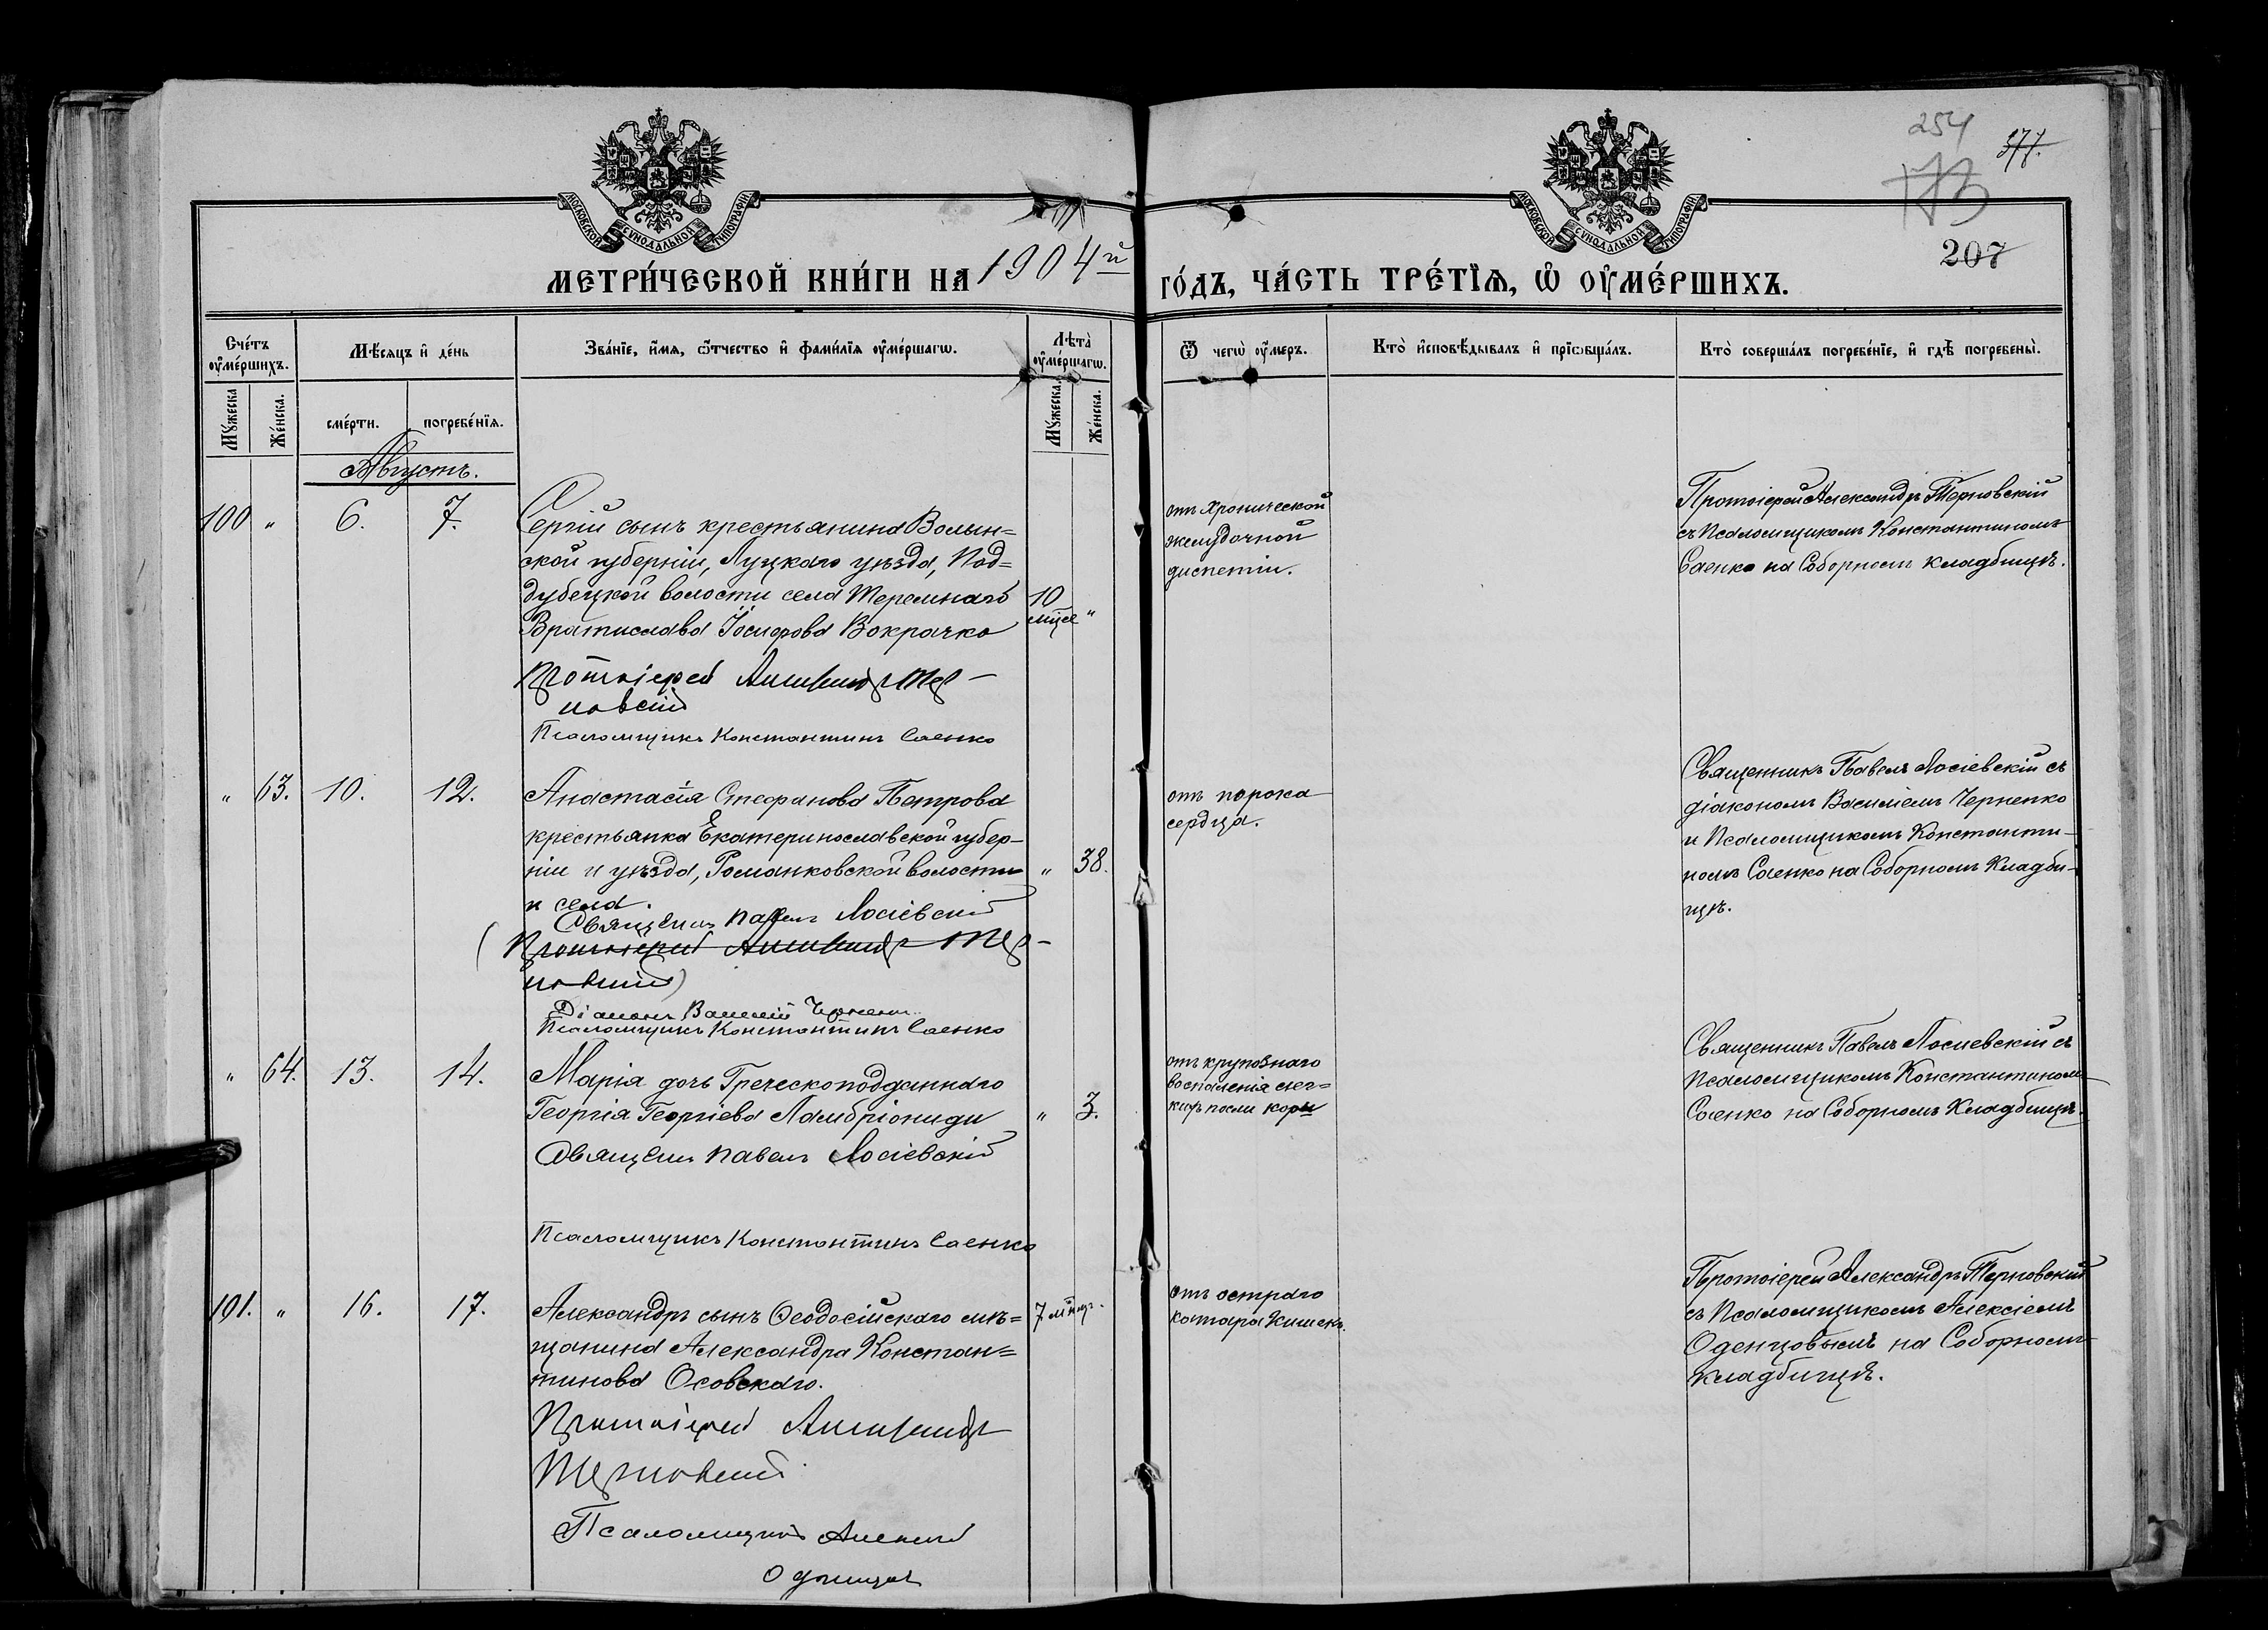 254
377.
173
207
МОСКОВСКОЙ СѴНОДАЛЬНОЙ ТИПОГРАФІИ
МОСКОВСКОЙ СѴНОДАЛЬНОЙ ТИПОГРАФІИ
МЕТРИ́ЧЕСКОЙ КНИ́ГИ НА 1904й ГО́ДЪ, ЧА́СТЬ ТРЕ́ТІѦ, Ѡ҆ ОУ҆МЕ́РШИХЪ.
Сче́тъ оу҆ме́ршихъ.
Мꙋ́жеска
Же́нска.
Мѣ́сѧцъ и҆ де́нь
сме́рти.
погребе́нїѧ.
Зва́нїе, и҆́мѧ, ѻ҆́тчество и҆ фами́лїѧ оу҆ме́ршагѡ.
Лѣ́та оу҆ме́ршагѡ.
Мꙋ́жеска.
Же́нска.
Ѿ чегѡ̀ оу҆́меръ.
Кто̀ и҆сповѣ́дывалъ и҆ прїѡбща́лъ.
Кто̀ соверша́лъ погребе́нїе, и҆ гдѣ̀ погребены̀.
Августъ.
100 " 6. 7.
Сергій сынъ крестьянина Волын=
ской губерніи, Луцкаго уѣзда, Под=
дубецкой волости села Теремнаго
Вратислава Іосифова Вокрачко
10
мцсе "
Протоіерей Александръ Тер-
новскій
Псаломщикъ Константинъ Саенко
отъ хронической
желудочной
диспепіи.
Протоіерей Александръ Терновскій
съ Псаломщикомъ Константиномъ
Саенко на Соборномъ кладбищѣ.
" 63. 10. 12.
Анастасія Стефанова Петрова
крестьянка Екатеринославской губер-
ніи и уѣзда, Романковской волости
и села.
" 38.
Священникъ Павелъ Лосіевскій
(Протоіерей Александръ Тер-
новскій)
Діаконъ Василій Черненко
Псаломщикъ Константинъ Саенко
отъ порока
сердца.
Священникъ Павелъ Лосіевскій съ
діакономъ Василіемъ Черненко
и Псаломщикомъ Константи-
номъ Саенко на Соборномъ Кладби-
щѣ.
" 64. 13. 14.
Марія дочь Греческоподданнаго
Георгія Георгіева Ламбріониди
" 3.
Священ. Павелъ Лосіевскій
Псаломщикъ Константинъ Саенко
отъ крупознаго
воспаленія лег=
кихъ посли кори
Священникъ Павелъ Лосиевскій съ
Псаломщикомъ Константиномъ
Саенко на Соборномъ Кладбищѣ.
101. " 16. 17.
Александръ сынъ Ѳеодосійскаго мѣ=
щанина Александра Констан=
тинова Осовскаго.
7 мцъ.
Протоіерей Александръ
Терновскій
Псаломщикъ Алексій
Оденцовъ
отъ остраго
катара Кишекъ.
Протоіерей Александръ Терновскій
съ Псаломщикомъ Алексіемъ
Оденцовымъ на Соборномъ
кладбищѣ.